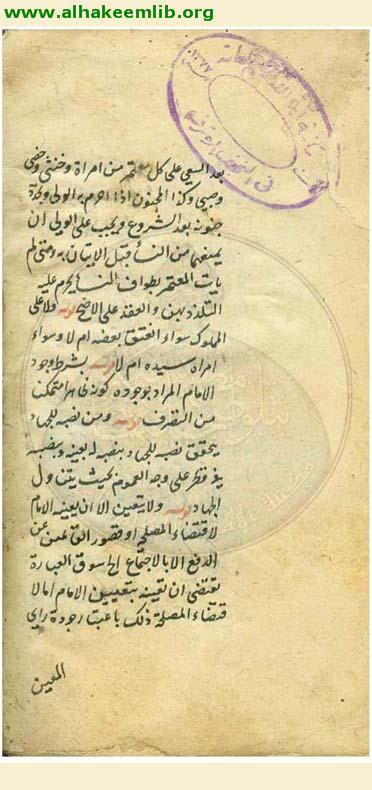 www.alhakeemlib.org
بعد السعي على كل معتمر من امراة وخنثى وخصي
وصبي وكذا المجنون اذا احرم به الولي وطرا
جنونه بعد الشروع ويجب على الولي ان
يمنعهما من النسا قبل الاتيان به ومتى لم
يات المعتمر بطواف النسا يحرم عليه
التلذذ بهن والعقد على الاصح قوله ولا على
المملوك سواء انعتق بعضه ام لا وسواء
امراه سيده ام لا قوله بشرط وجود
الامام المراد بوجوده كونه ظاهرا متمكن
من التصرف قوله ومن نصبه للجهاد
يتحقق نصبه للجهاد بنصبه له بعينه وبنصبه
في قطر على وجه العموم بحيث يتناول
الجهاد قوله ولا يتعين الا ان يعينه الامام
لاقتضاء المصلحة او قصور القائمين عن
الدفع الا بالاجتماع الخ سوق العبارة
تقتضي ان تعينه بتعيين الامام اما لا
قتضاء المصلحة ذلك باعتبار جودة راي
المعين